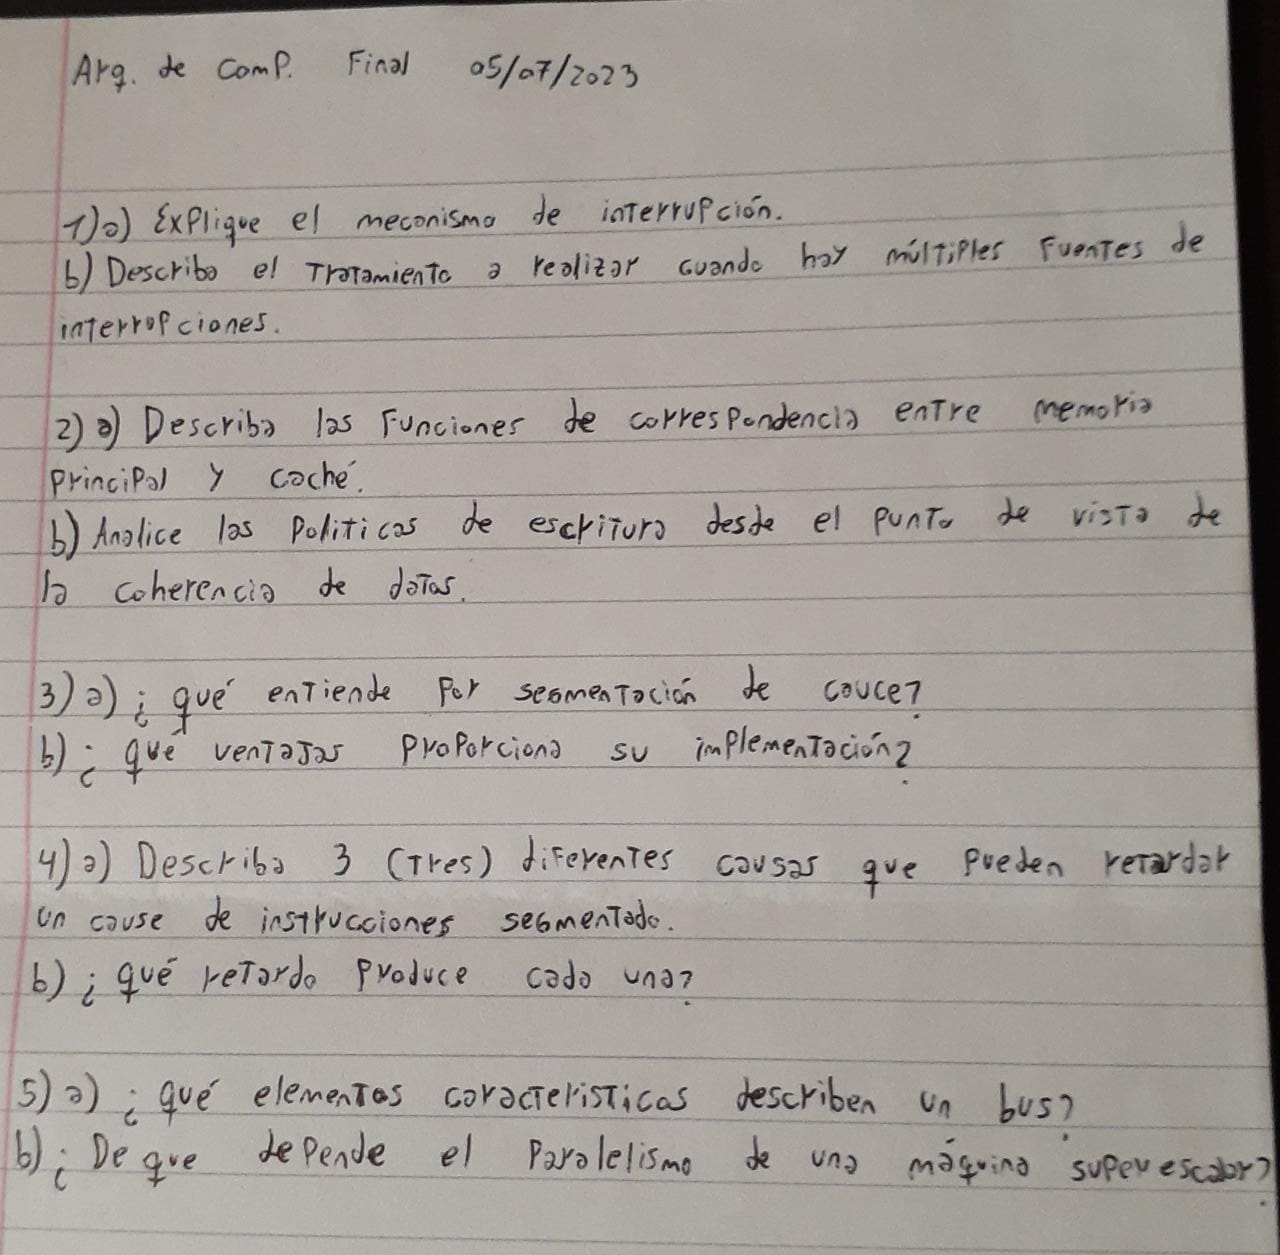 Arq. de Comp. Final 05/07/2023
1)a) Explique el mecanismo de interrupción.
b) Describa el Tratamiento a realizar cuando hay múltiples fuentes de
interrupciones.
2) a) Describa las funciones de correspondencia entre memoria
principal y caché.
b) Analice las politicas de escritura desde el punto de vista de
la coherencia de datos.
3) a) ¿qué entiende por segmentación de cauce?
b) ¿qué ventajas proporciona su implementación?
4) a) Describa 3 (Tres) diferentes causas que pueden retardar
un cause de instrucciones segmentado.
b) ¿qué retardo produce cada una?
5) a) ¿qué elementos caracteristicas describen un bus?
b) ¿De que depende el paralelismo de una máquina superescalar?